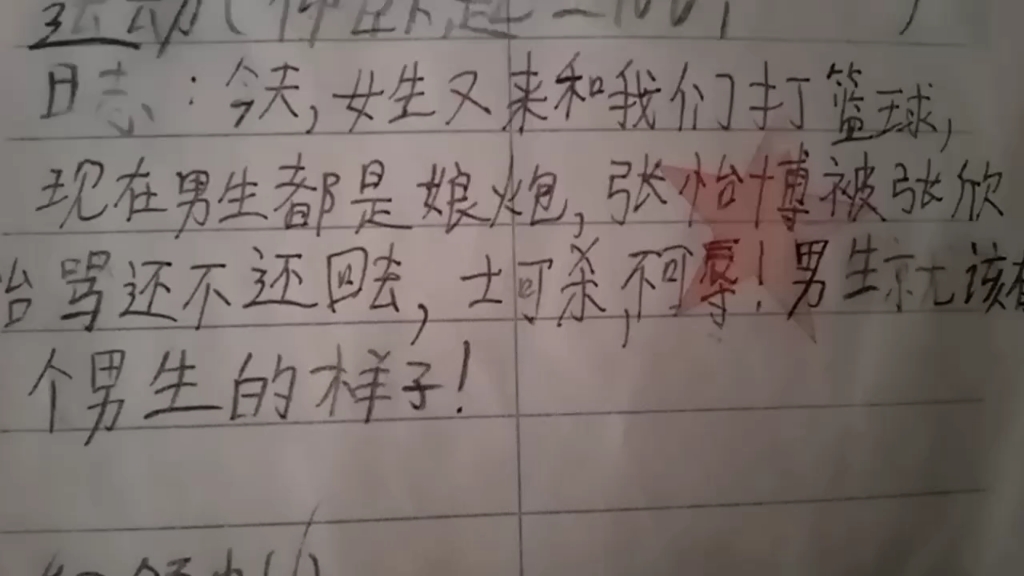 运动(
日志:今天,女生又来和我们打篮球,
现在男生都是娘炮,张怡博被张欣
怡骂还不还回去,士可杀,不可辱!男生就该有
个男生的样子!